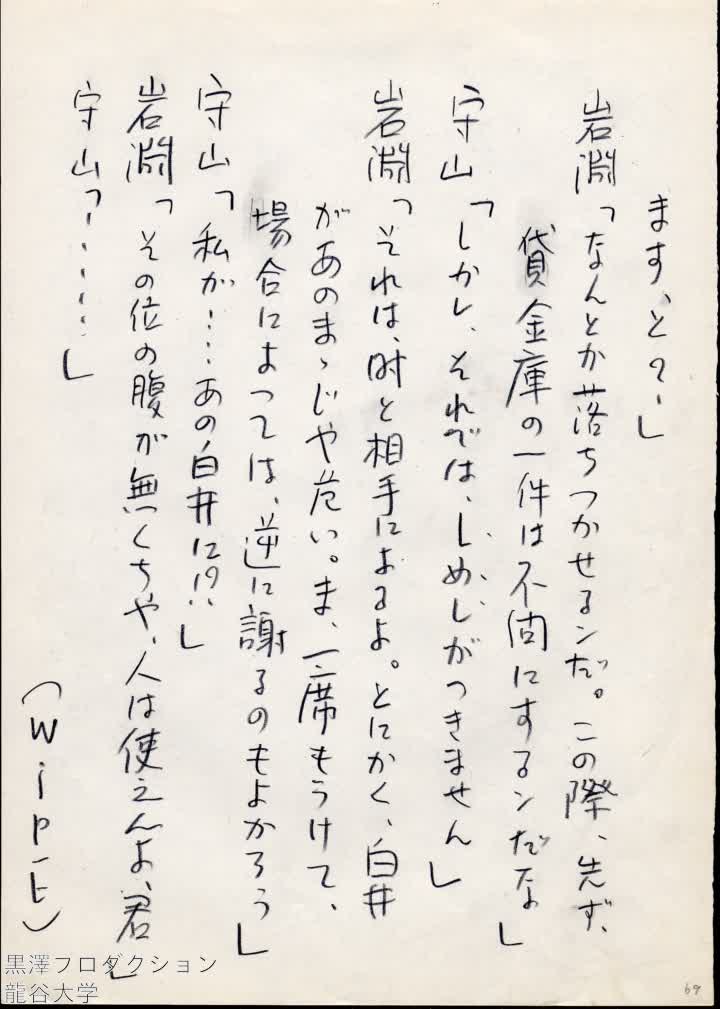 ます、と？」
岩淵「なんとか落ちつかせるンだ。この際、先ず、
貸金庫の一件は不問にするンだな」
守山「しかし、それでは、しめしがつきません」
岩淵「それは、時と相手によるよ。とにかく、白井
があのまゝじや危い。ま、一席もうけて、
場合によつては、逆に謝るのもよかろう」
守山「私が……あの白井に!?」
岩淵「その位の腹が無くちや、人は使えんよ、君」
守山「……」
（Wipe）
黒澤プロダクション
龍谷大学
69